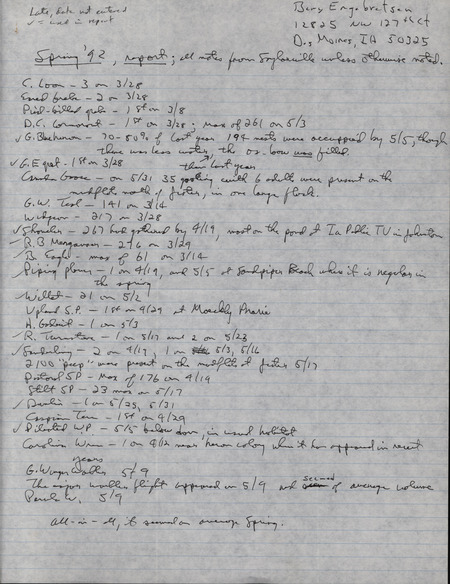 Late, data not entered
✓ = used in report
Bery Engebretsen
12825 NW 127th Ct
D. Moines, IA 50325
Spring '92, report; all notes from Saylorville unless otherwise noted.
C. Loon - 3 on 3/28
Eared Grebe - 2 on 3/28
Pied-billed grebe - 1st on 3/8
D.C. Cormorant - 1st on 3/28 - max of 261 on 5/3
✓ G. B. Heron - 70-80% of last year. 194 nests were occupied by 5/5, though
there was less water than last year. the ox-bow was filled.
✓ G. Egret - 1st on 3/28
Canada Goose - on 5/31 35 gosling with 6 adults were present on the
mudflats north of Jester, in one large flock.
G.W. Teal - 141 on 3/14
Widgeon - 217 on 3/28
✓ Shoveler - 267 had gathered by 4/19, most on the pond at Ia Public TV in Johnston
✓ R.B Merganser - 276 on 3/29
✓ B. Eagle - max of 61 on 3/14
✓ Piping plover - 1 on 4/19, and 5/5 at Sandpiper Beach where it is regular in
the spring
✓ Willet - 21 on 5/2
Upland S.P. - 1st on 4/29 at Moeckly Prairie
H. Godwit - 1 on 5/3
✓ R. Turnstone - 1 on 5/17 and 2 on 5/23
✓ Sanderling - 2 on 4/19, 1 on 5/3, 5/16
2100 "peep" were present on the mudflats at Jester 5/17
Pectoral SP - Max of 176 on 4/19
Stilt SP - 23 max on 5/17
✓ Dunlin - 1 on 5/25, 5/31
Caspian Tern - 1st on 4/29
✓ Pileated W.P. - 5/5 below dam, in usual habitat
Carolina Wren - 1 on 4/12 near heron colony where it has appeared in recent
years
G. Wing Warbler 5/9
The major warbler flight appeared on 5/9 and seemed of average volume
Parula W, 5/9
All-in-all, it seemed an average Spring.